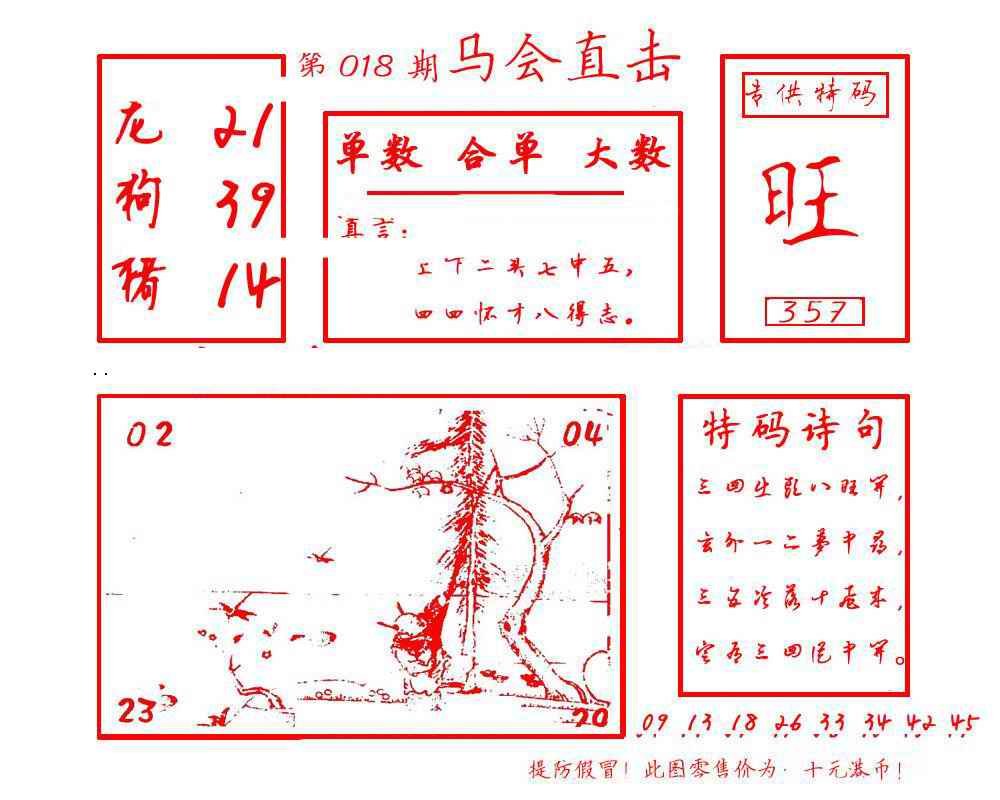 第 018 期 马会直击
龙 21
狗 39
猪 14
单数 合单 大数
真言：
上下二头七中五，
四四怀才八得志。
专供特码
旺
357
02
04
23
20
特码诗句
三四生肖八旺开，
玄外一二梦中寻，
三五冷落十卷来，
三四 中开。
09 13 18 26 33 34 42 45
提防假冒！此图零售价为·十元港币！